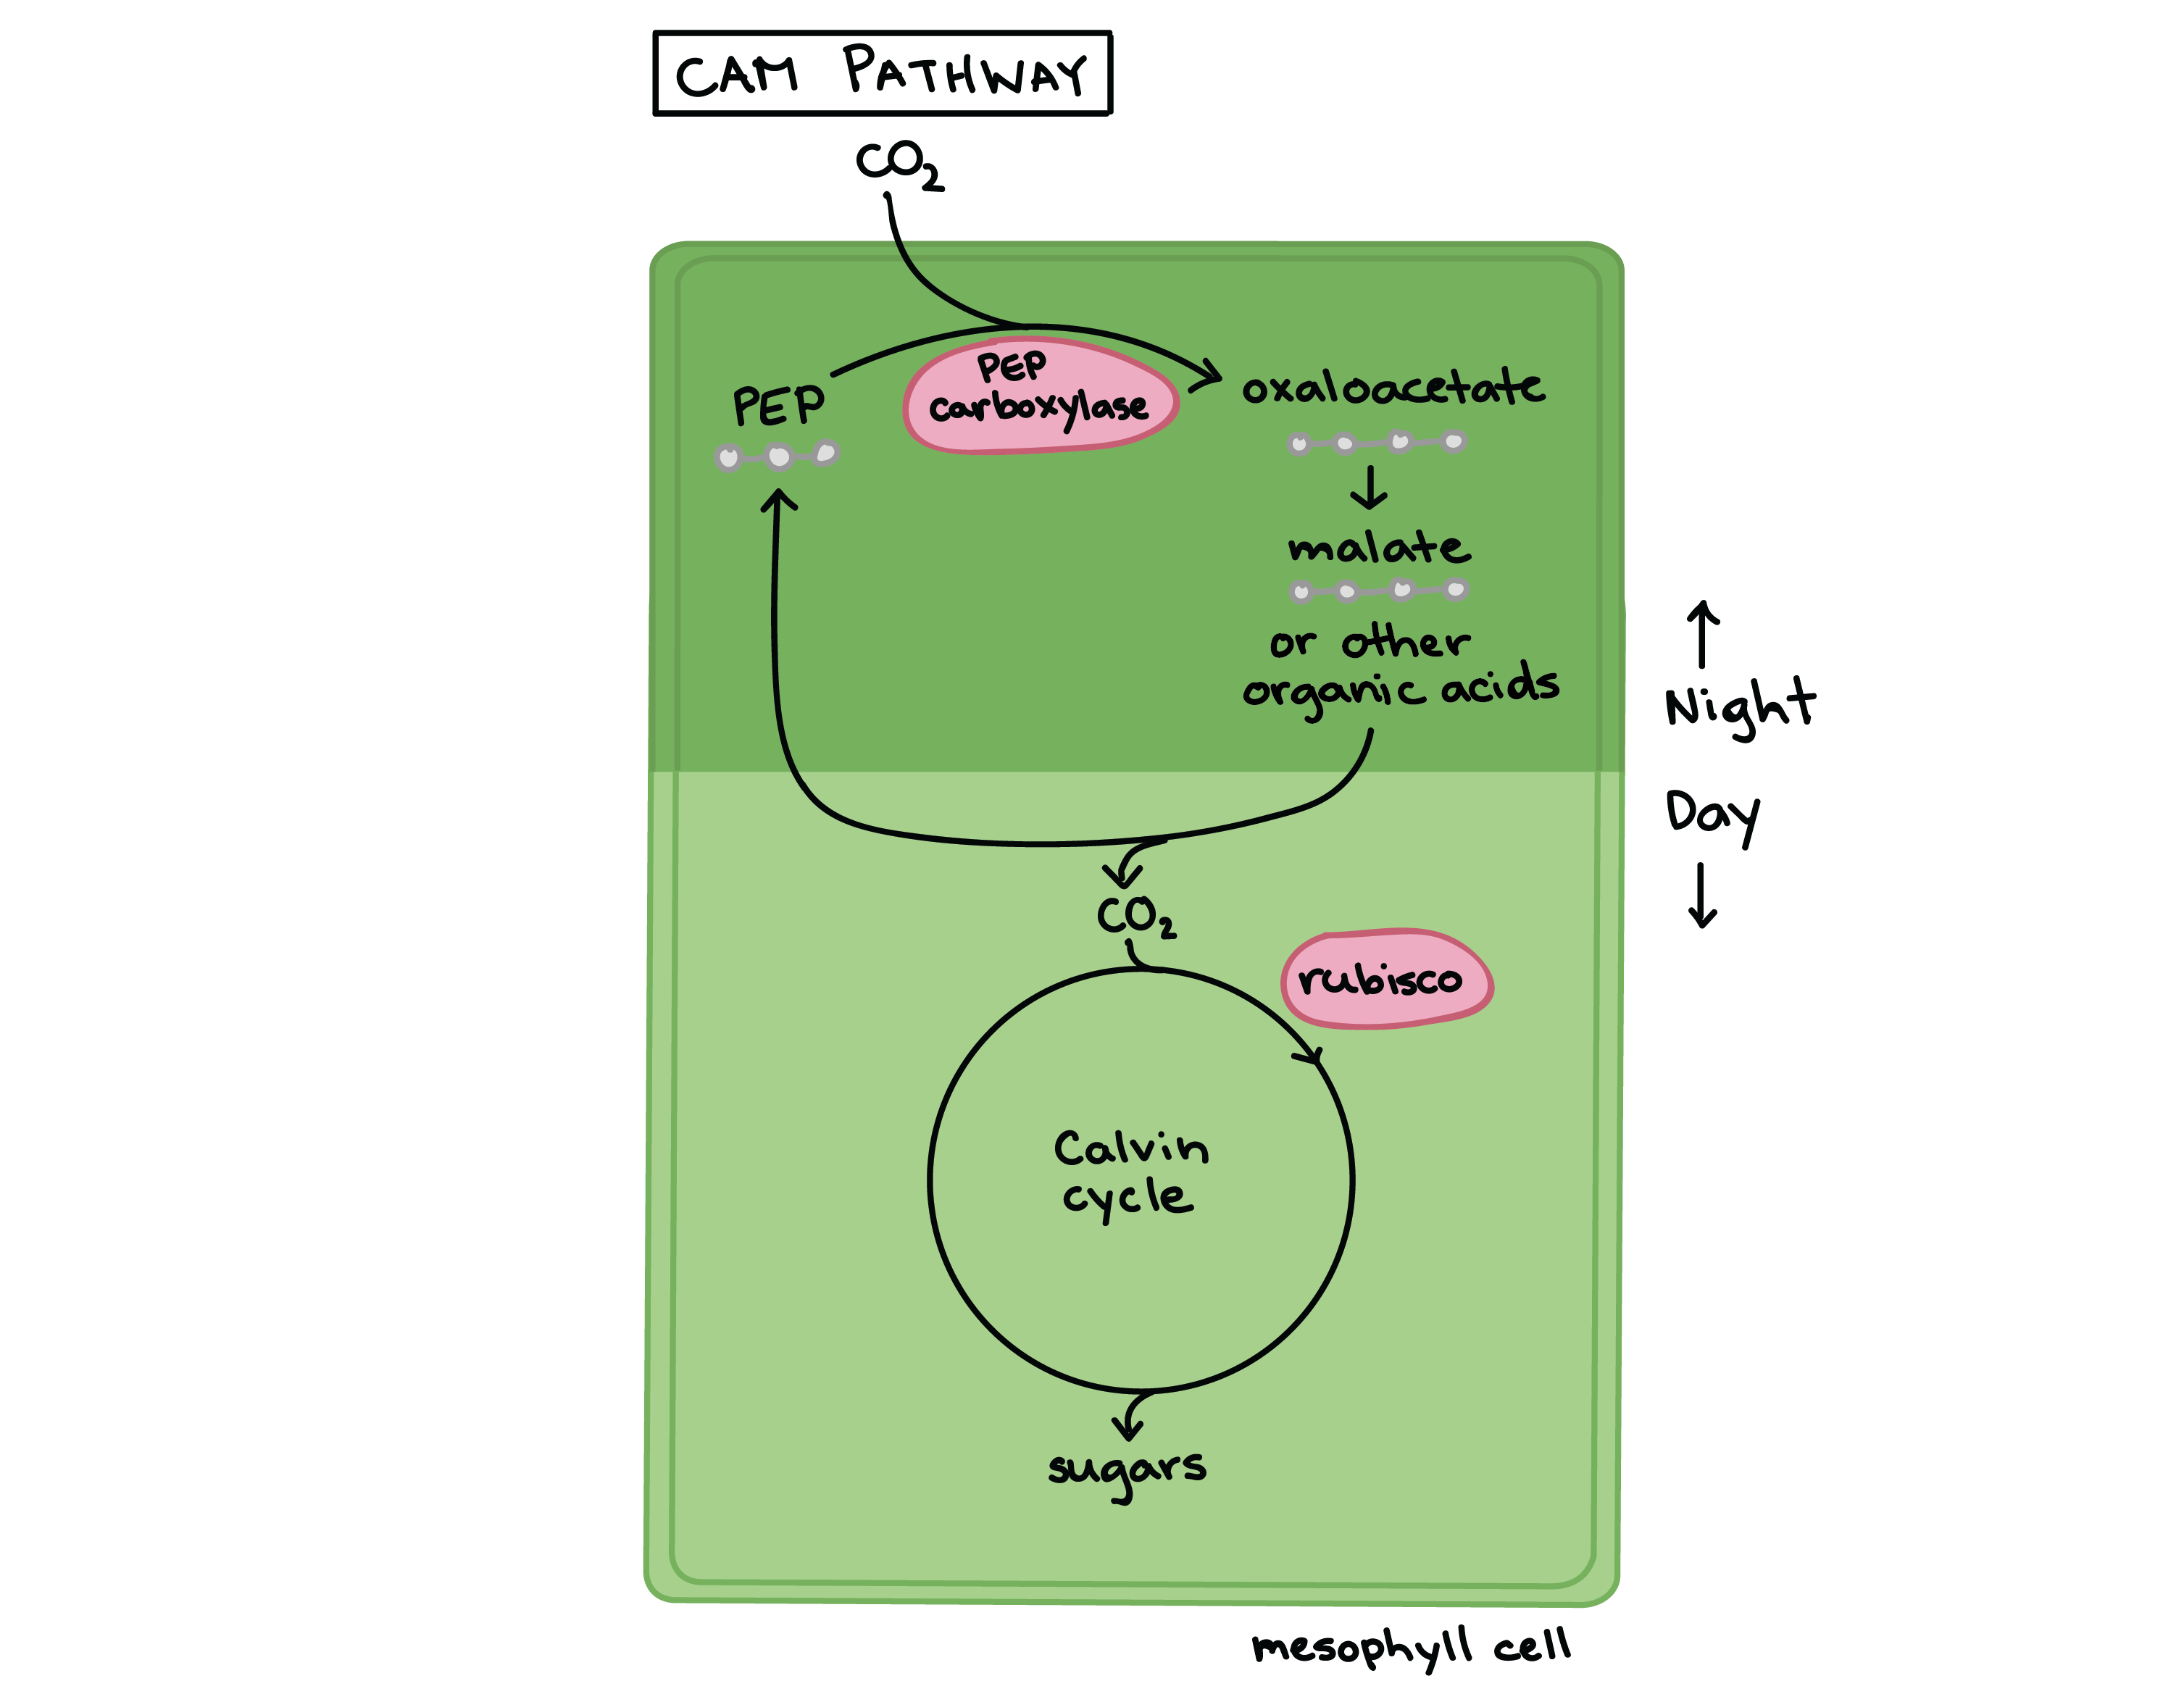 CAM PATHWAY
CO₂
PEP
PEP
carboxylase
oxaloacetate
malate
or other
organic acids
Night
Day
CO₂
rubisco
Calvin
cycle
sugars
mesophyll cell